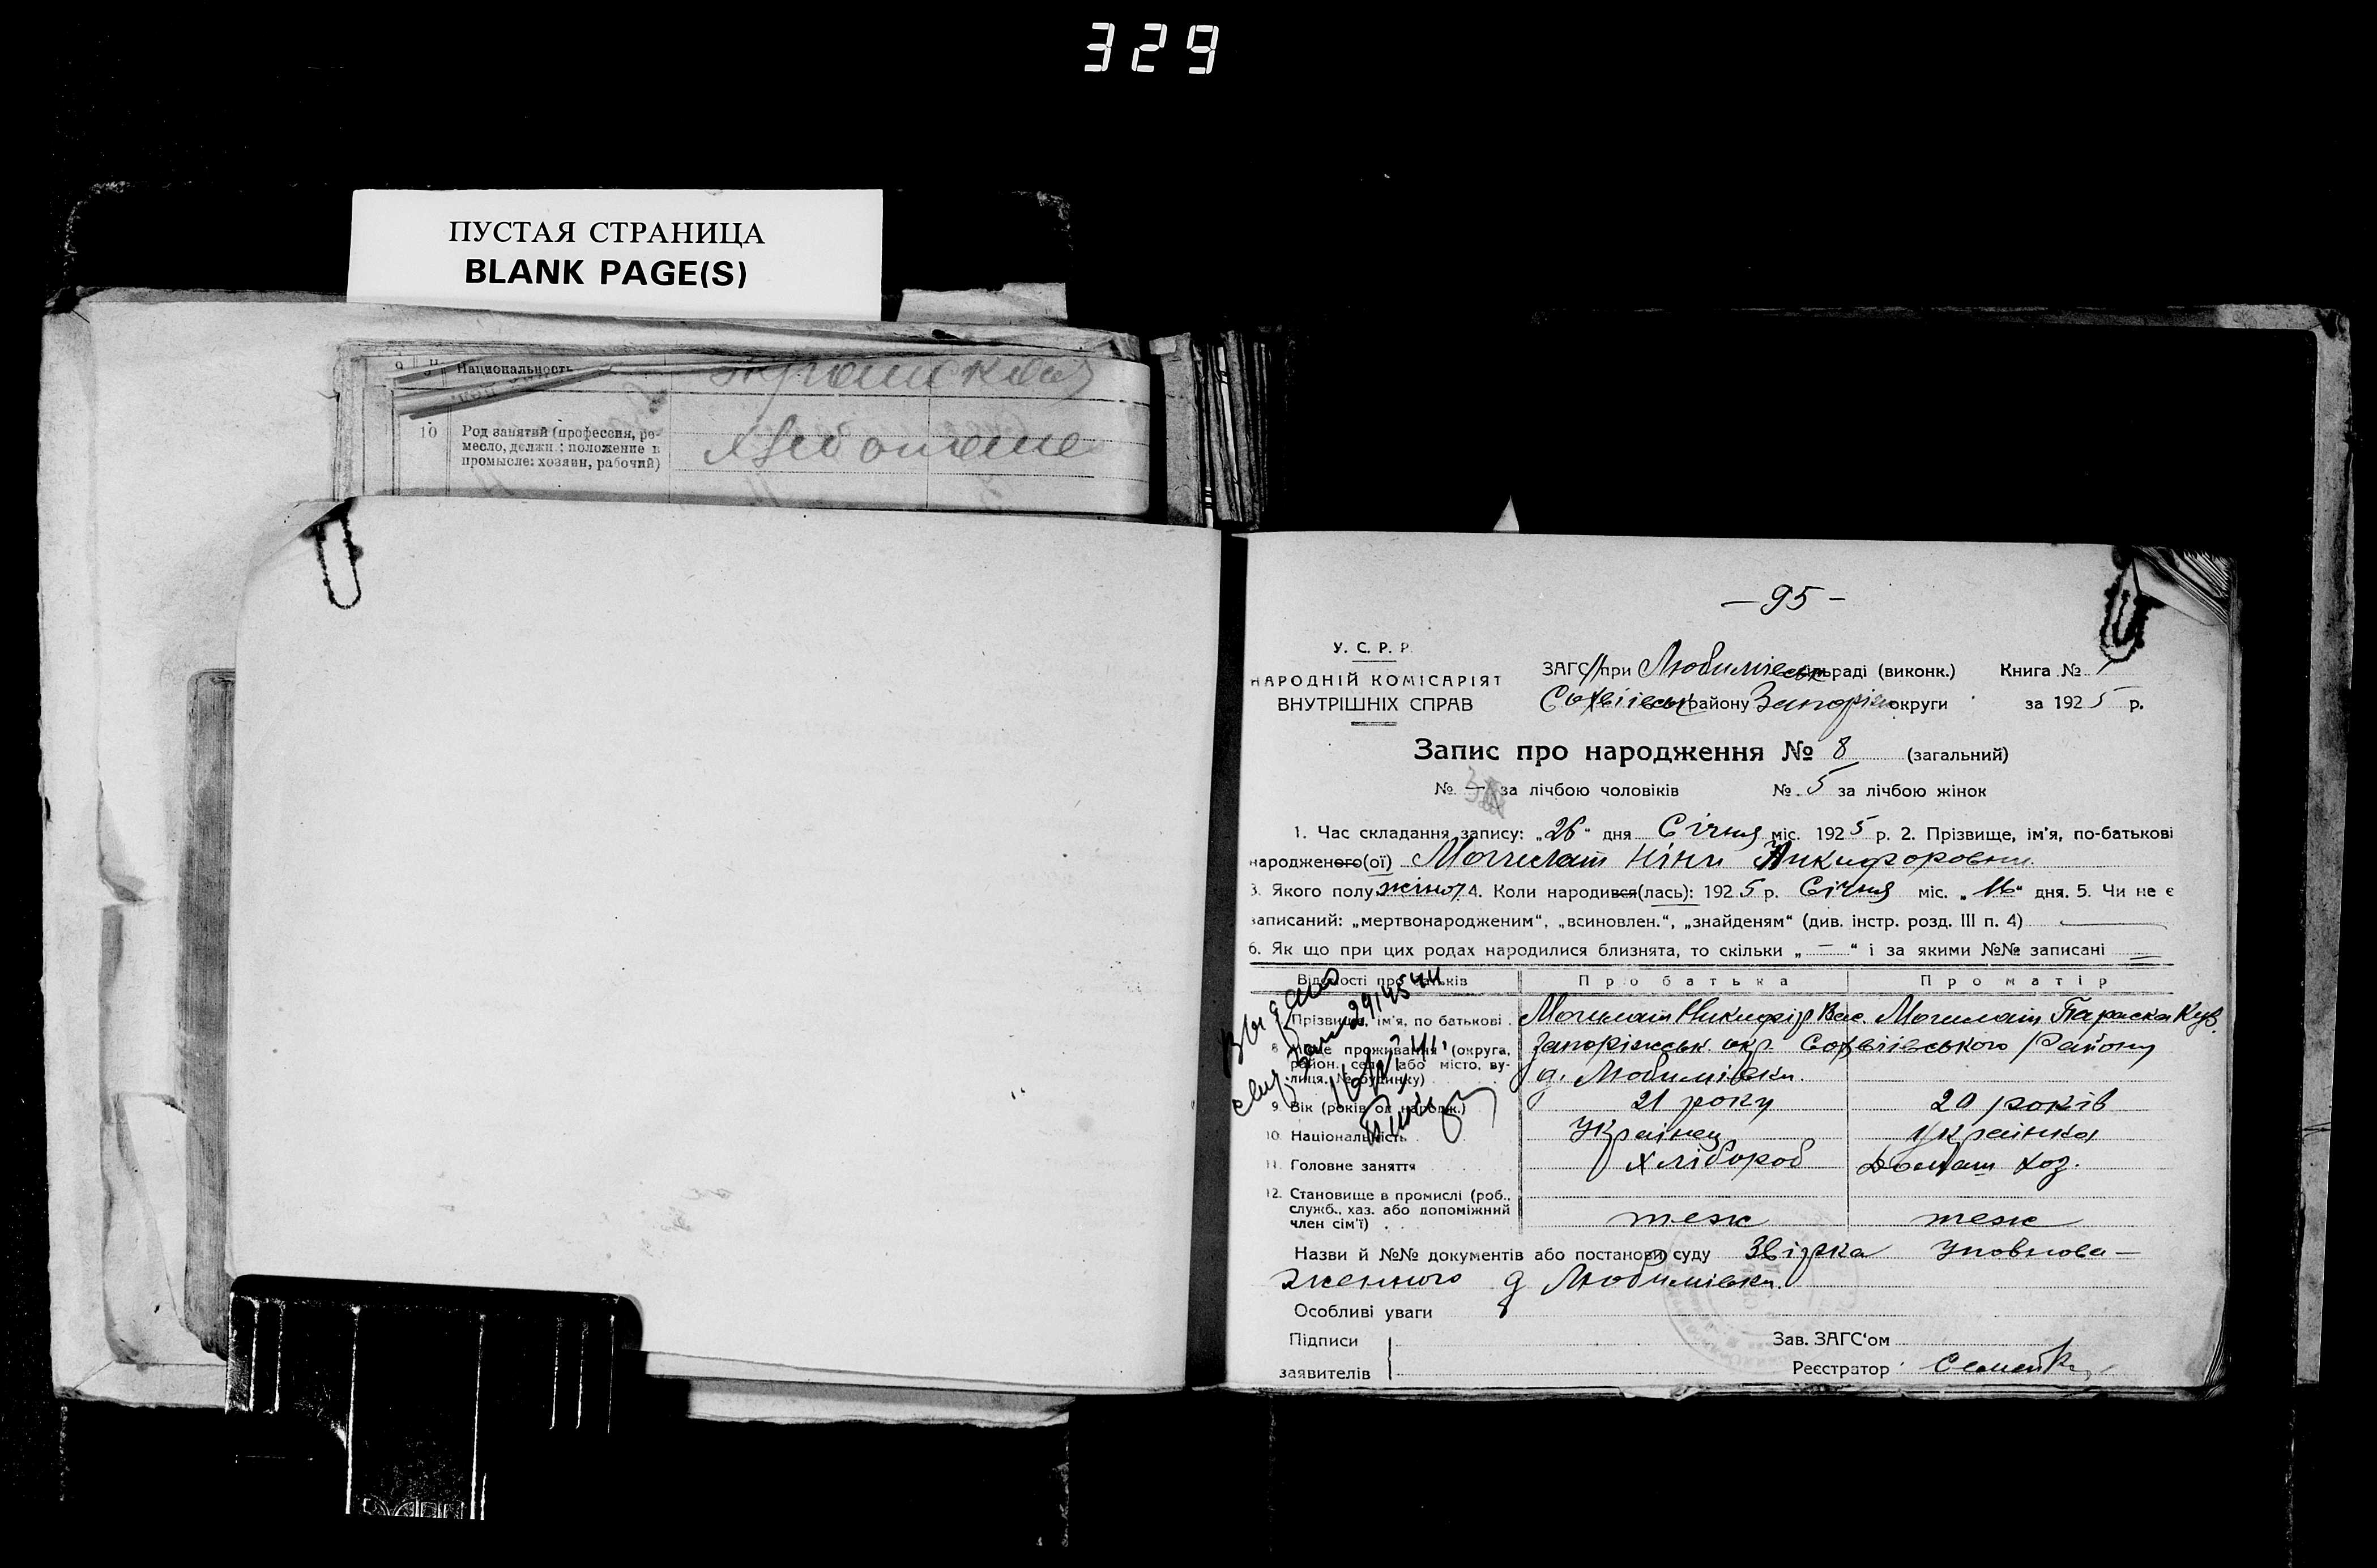 329
ПУСТАЯ СТРАНИЦА
BLANK PAGE(S)
Национальность
10 Род занятий (профессия, ре-
месло, должн.; положение в
промысле: хозяин, рабочий)
— 95 —
У. С. Р. Р.
НАРОДНІЙ КОМІСАРІЯТ
ВНУТРІШНІХ СПРАВ
ЗАГС при Любимівськ раді (виконк.) Книга №
Софіївськ району Запоріж округи за 1925 р.
Запис про народження № 8 (загальний)
№ — за лічбою чоловіків № 5 за лічбою жінок
1. Час складання запису: „26“ дня Січня міс. 1925 р. 2. Прізвище, ім'я, по-батькові
народженого(ої) Могилат Ніни Никифоровни
3. Якого полу жіноч 4. Коли народився(лась): 1925 р. Січня міс. „16“ дня. 5. Чи не є
записаний: „мертвонародженим“, „всиновлен.“, „знайденям“ (див. інстр. розд. III п. 4)
6. Як що при цих родах народилися близнята, то скільки „—“ і за якими №№ записані —
Відомості про батьків Про батька Про матір
Прізвище, ім'я, по батькові Могилат Никифір Вас. Могилат Параска Куз.
8 Місце проживання (округа, Запоріжськ. окр. Софіївського Району
район, село або місто, ву-
лиця, № будинку) д. Любимівки.
9. Вік (років од народж.) 21 року 20 років
10. Національність Українец Українка
11. Головне заняття Хлібороб Домаш хоз.
12. Становище в промислі (роб.,
служб., хаз. або допоміжний
член сім'ї) теж теж
Назви й №№ документів або постанови суду Звірка уповнова—
женного д Любимівки
Особливі уваги
Підписи Зав. ЗАГС'ом
заявителів Реєстратор